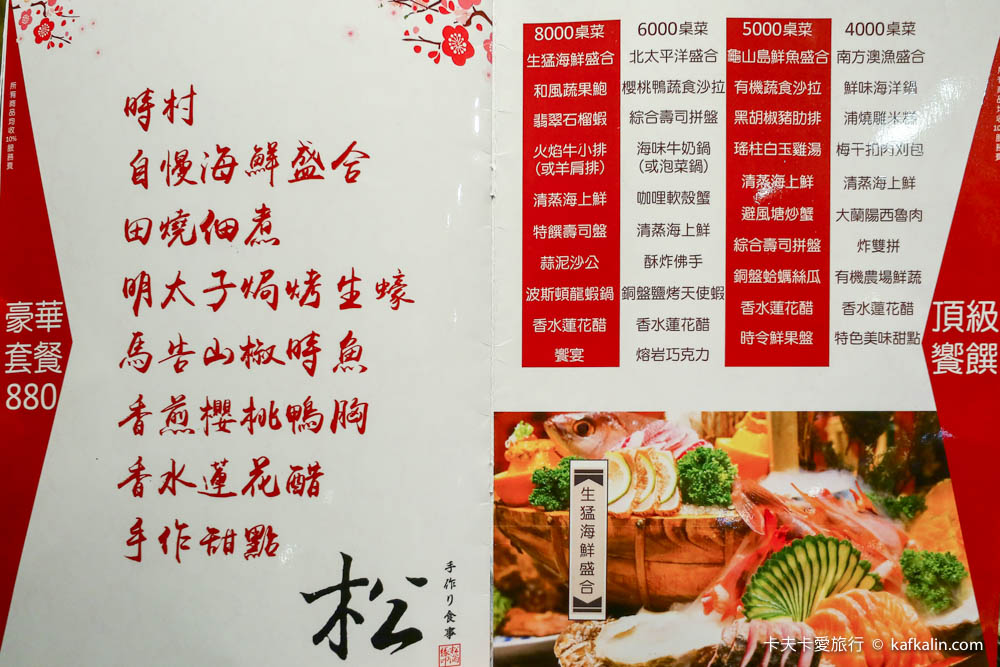 所有商品均收10%服務費
豪華
套餐
880
時村
自慢海鮮盛合
田燒佃煮
明太子焗烤生蠔
馬告山椒時魚
香煎櫻桃鴨胸
香水蓮花醋
手作甜點
松
手作り食事
8000桌菜
生猛海鮮盛合
和風蔬果鮑
翡翠石榴蝦
火焰牛小排
(或羊肩排)
清蒸海上鮮
特饌壽司盤
蒜泥沙公
波斯頓龍蝦鍋
香水蓮花醋
饗宴
6000桌菜
北太平洋盛合
櫻桃鴨蔬食沙拉
綜合壽司拼盤
海味牛奶鍋
(或泡菜鍋)
咖哩軟殼蟹
清蒸海上鮮
酥炸佛手
銅盤鹽烤天使蝦
香水蓮花醋
熔岩巧克力
5000桌菜
龜山島鮮魚盛合
有機蔬食沙拉
黑胡椒豬肋排
瑤柱白玉雞湯
清蒸海上鮮
避風塘炒蟹
綜合壽司拼盤
銅盤蛤蠣絲瓜
香水蓮花醋
時令鮮果盤
4000桌菜
南方澳漁盛合
鮮味海洋鍋
浦燒雕米糕
梅干扣肉刈包
清蒸海上鮮
大蘭陽西魯肉
炸雙拼
有機農場鮮蔬
香水蓮花醋
特色美味甜點
頂級
饗饌
生猛海鮮盛合
卡夫卡愛旅行 © kafkalin.com